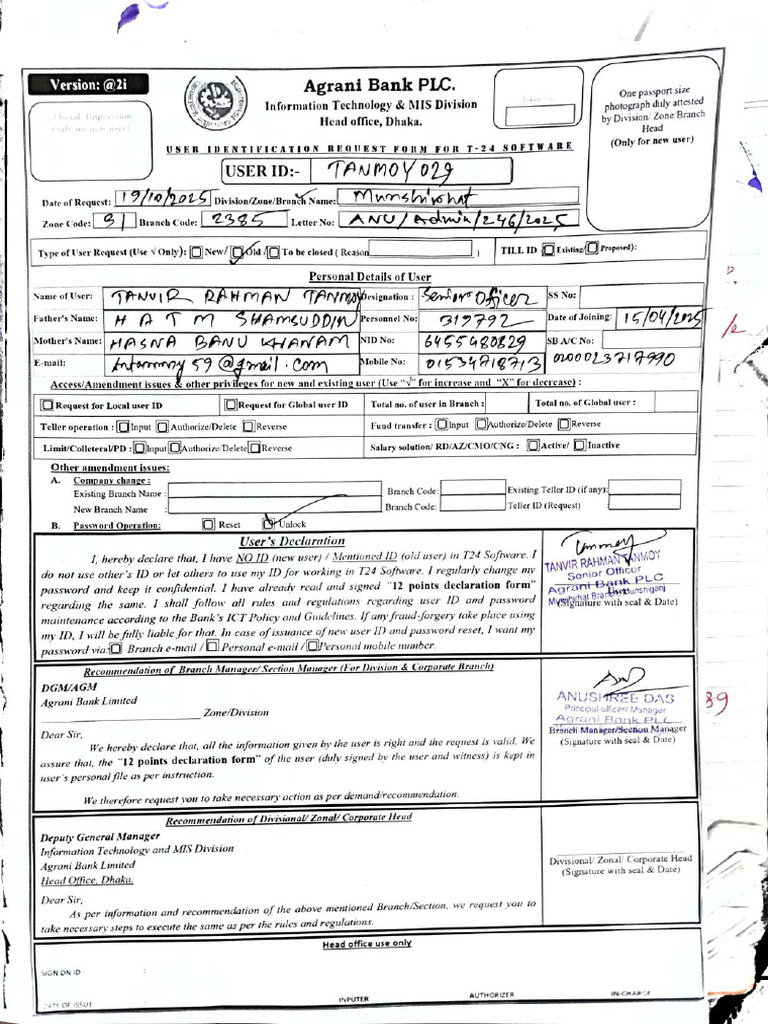 Version: @2i
Agrani Bank PLC.
Information Technology & MIS Division
Head office, Dhaka.
One passport size
photograph duly attested
by Division/ Zone/Branch
Head
(Only for new user)
USER IDENTIFICATION REQUEST FORM FOR T-24 SOFTWARE
USER ID:- TANMOY029
Date of Request: 19/10/2025 Division/Zone/Branch Name: Munshirhat
Zone Code: 31 Branch Code: 2385 Letter No: ANU/Admin/246/2025
Type of User Request (Use √ Only): New/ Old / To be closed ( Reason ) TILL ID Existing/ Proposed):
Personal Details of User
Name of User: TANVIR RAHMAN TANMOY Designation : Senior Officer SS No:
Father's Name: H A T M SHAMSUDDIN Personnel No: 319792 Date of Joining: 15/04/2025
Mother's Name: HASNA BANU KHANAM NID No: 6455480829 SB A/C No:
E-mail: 59@gmail.com Mobile No: 01534718713 0200023717990
Access/Amendment issues & other privileges for new and existing user (Use "√" for increase and "X" for decrease) :
Request for Local user ID Request for Global user ID Total no. of user in Branch : Total no. of Global user :
Teller operation : Input Authorize/Delete Reverse Fund transfer : Input Authorize/Delete Reverse
Limit/Colleteral/PD : Input Authorize/Delete Reverse Salary solution/ RD/AZ/CMO/CNG : Active/ Inactive
Other amendment issues:
A. Company change :
Existing Branch Name : Branch Code: Existing Teller ID (if any):
New Branch Name : Branch Code: Teller ID (Request) :
B. Password Operation: Reset Unlock
User's Declaration
I, hereby declare that, I have NO ID (new user) / Mentioned ID (old user) in T24 Software. I
do not use other's ID or let others to use my ID for working in T24 Software. I regularly change my
password and keep it confidential. I have already read and signed "12 points declaration form"
regarding the same. I shall follow all rules and regulations regarding user ID and password
maintenance according to the Bank's ICT Policy and Guidelines. If any fraud-forgery take place using
my ID, I will be fully liable for that. In case of issuance of new user ID and password reset, I want my
password via: Branch e-mail / Personal e-mail / Personal mobile number.
Tanmoy
TANVIR RAHMAN TANMOY
Senior Officer
Agrani Bank PLC
Munshirhat Branch, Munshiganj
User
(Signature with seal & Date)
Recommendation of Branch Manager/ Section Manager (For Division & Corporate Branch)
DGM/AGM
Agrani Bank Limited
Zone/Division
Dear Sir,
We hereby declare that, all the information given by the user is right and the request is valid. We
assure that, the "12 points declaration form" of the user (duly signed by the user and witness) is kept in
user's personal file as per instruction.
We therefore request you to take necessary action as per demand/recommendation.
ANUSHREE DAS
Principal officer/ Manager
Agrani Bank PLC
Branch Manager/Section Manager
(Signature with seal & Date)
Recommendation of Divisional/ Zonal/ Corporate Head
Deputy General Manager
Information Technology and MIS Division
Agrani Bank Limited
Head Office, Dhaka.
Dear Sir,
As per information and recommendation of the above mentioned Branch/Section, we request you to
take necessary steps to execute the same as per the rules and regulations.
Divisional/ Zonal/ Corporate Head
(Signature with seal & Date)
Head office use only
SIGN ON ID :
DATE OF ISSUE : INPUTER AUTHORIZER IN-CHARGE